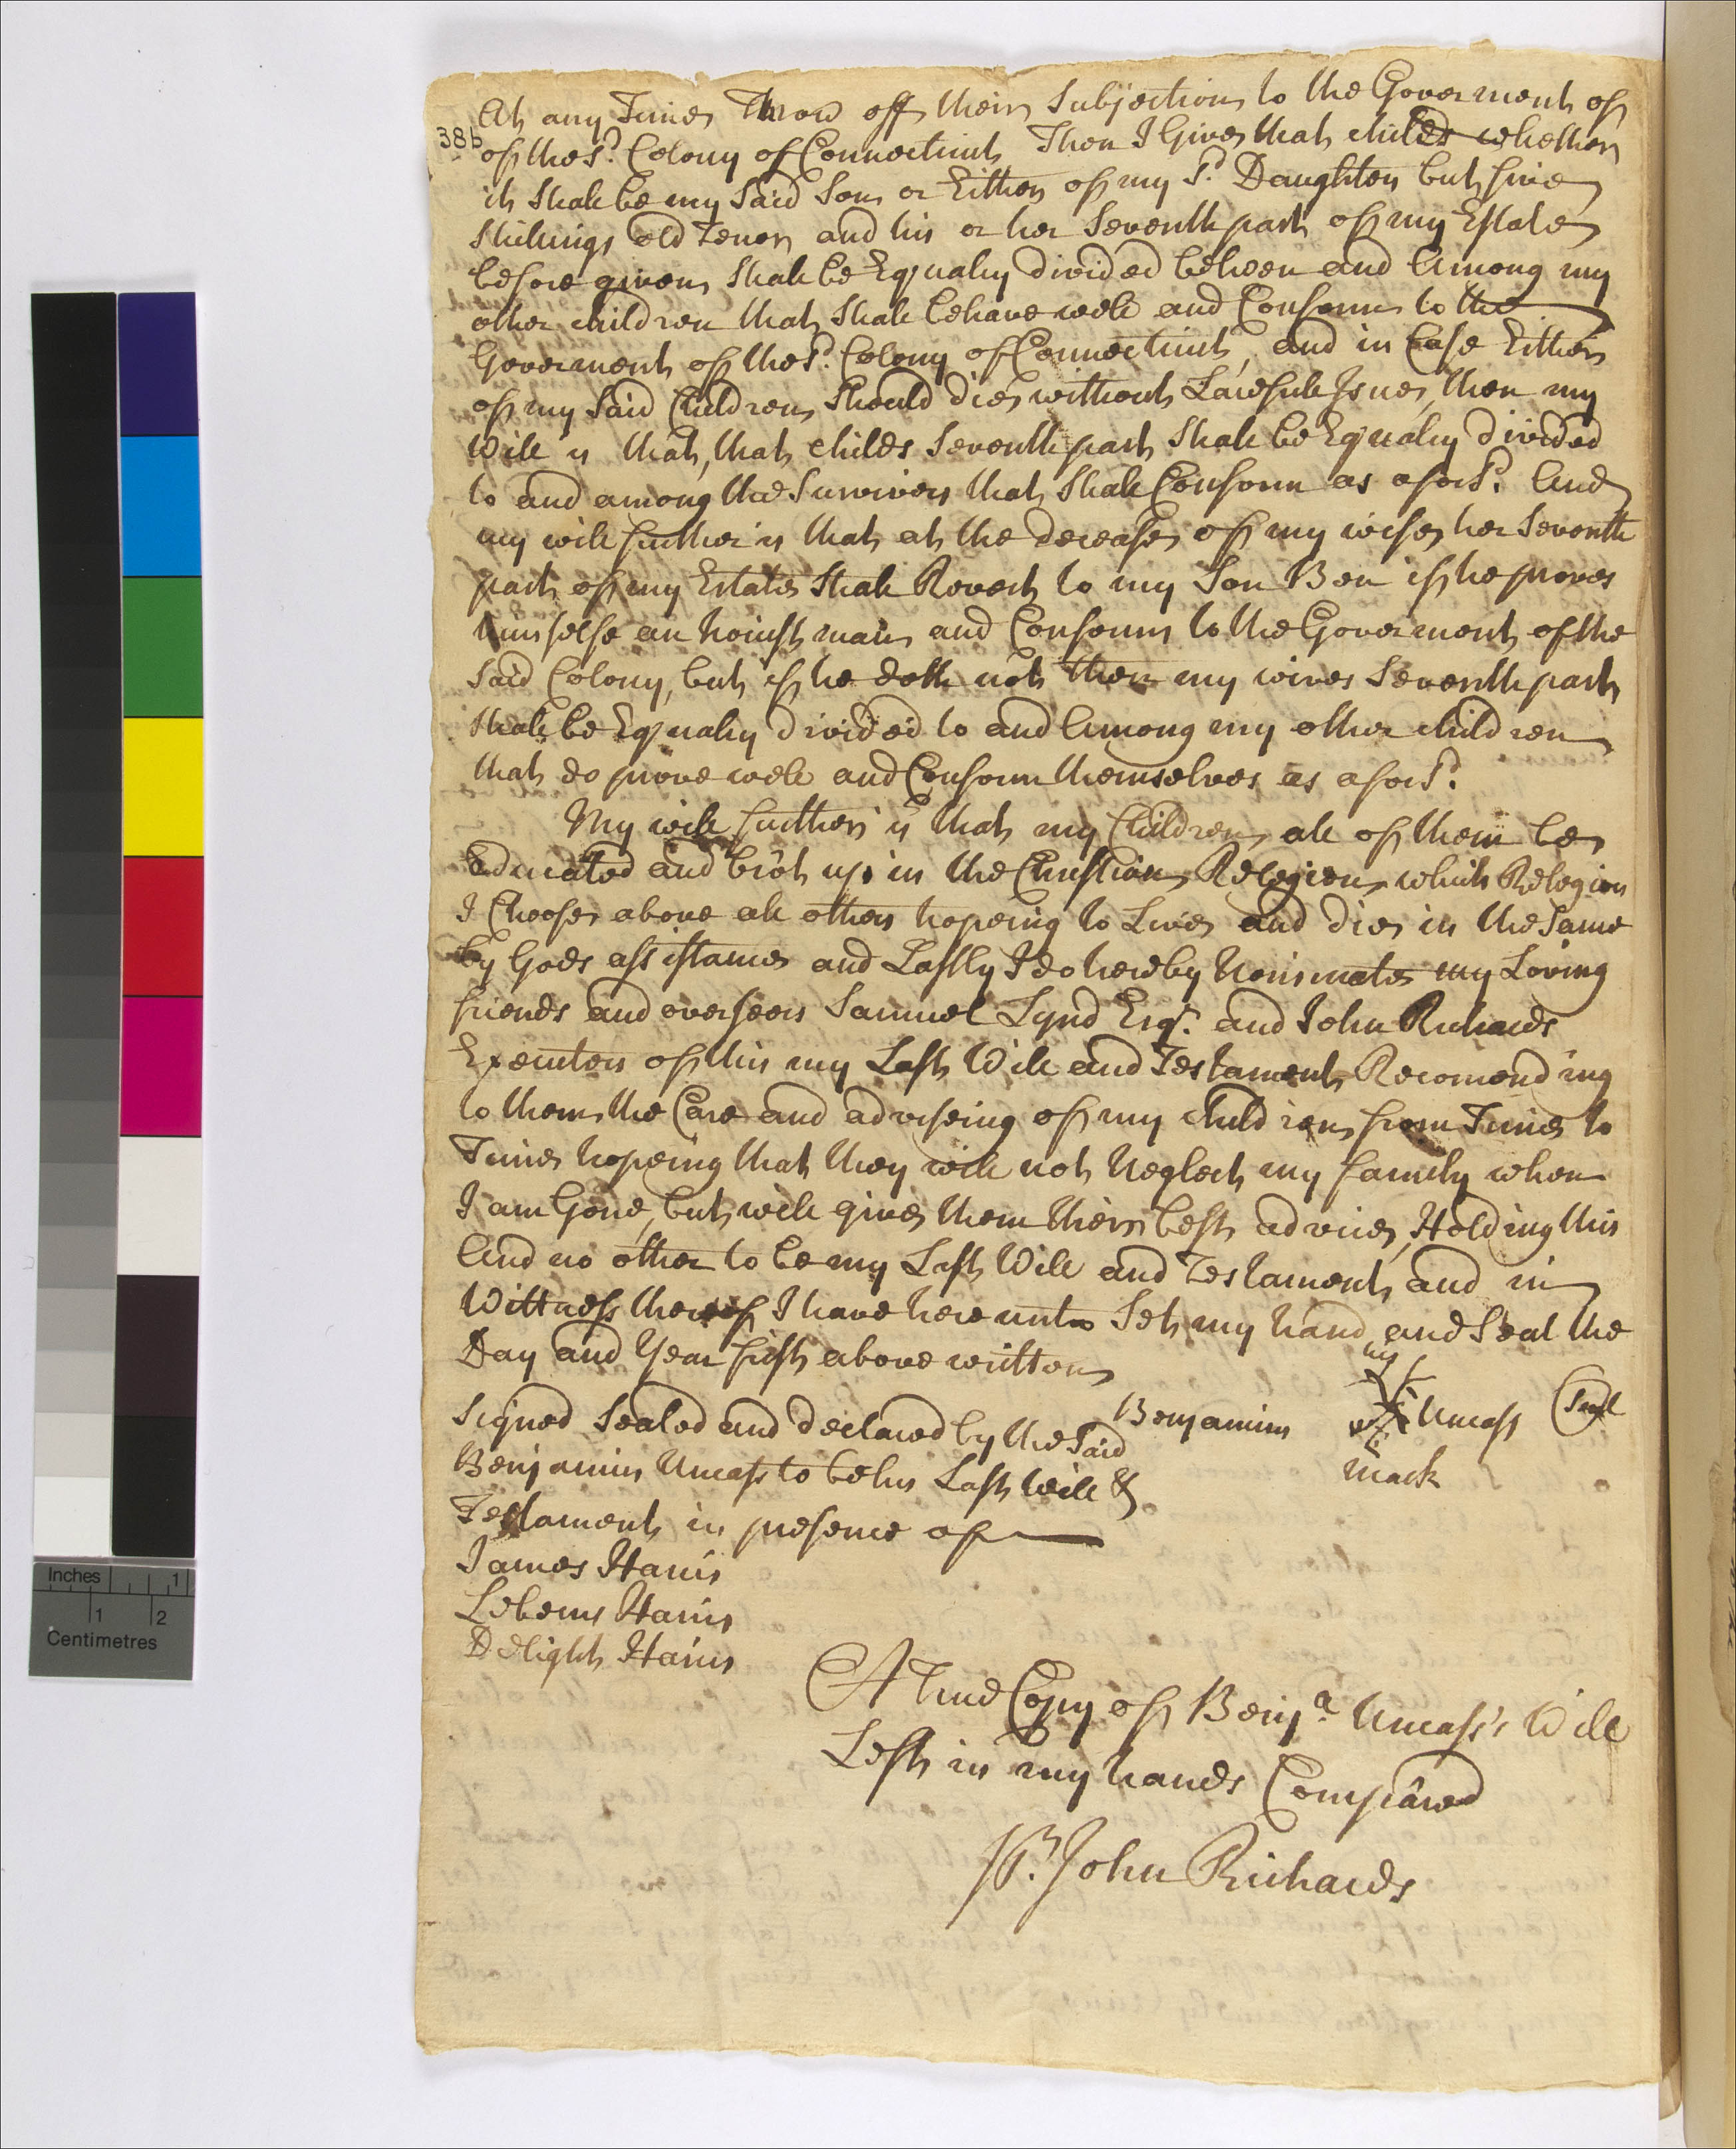 At any Time Throw off their Subjection to the Goverment of
38b
of the sd. Colony of Connecticut, Then I Give that child whether
it Shall be my Said Son or Either of my sd. Daughters but five
Shillings old Tenor and his or her Seventh part of my Estate
before given Shall be Equally divided between and Among my
other children that Shall behave well and Conform to the
Goverment of the sd. Colony of Connecticut, and in Case Either
of my Said Children Should die without Lawfull Isue, then my
Will is that, that childs Seventh part Shall be Equally divided
to and among the Survivers that Shall Conform as aforsd. And
my will further is that at the decease of my wife her Seventh
part of my Estate Shall Revert to my Son Ben if he proves
himselfe an honist man and Conform to the Goverment of the
Said Colony, but if he doth not then my wives Seventh part
Shall be Equally divided to and Among my other children
that do prove well and Conform themselves as aforsd.
My will further is that my Children all of them be
Educated and brot up in the Christian Relegion which Relegion
I Choose above all others hopeing to Live and die in the Same
by Gods assistance and Lastly I do hereby Nominate my Loving
friends and overseers Samuel Lynd Esqr. and John Richards
Executors of this my Last Will and Testament Recomending
to them the Care and adviseing of my children from Time to
Time hopeing that they will not Neglect my family when
I am Gone, but will give them their best advice, Holding this
And no other to be my Last Will and Testament, and in
Wittness thereof I have here unto Set my hand and Seal the
Day and Year first above written
Signed Sealed and declared by the Said
Benjamin Uncass to be his Last Will &
Testament in presence of
Benjamin
his
Uncass
Seal
mark
James Harris
Lebeus Harris
Delight Harris
A True Copy of Benja. Uncass's Will
Left in my hands Compared
Pr. John Richards
Inches 1
1 2
Centimetres